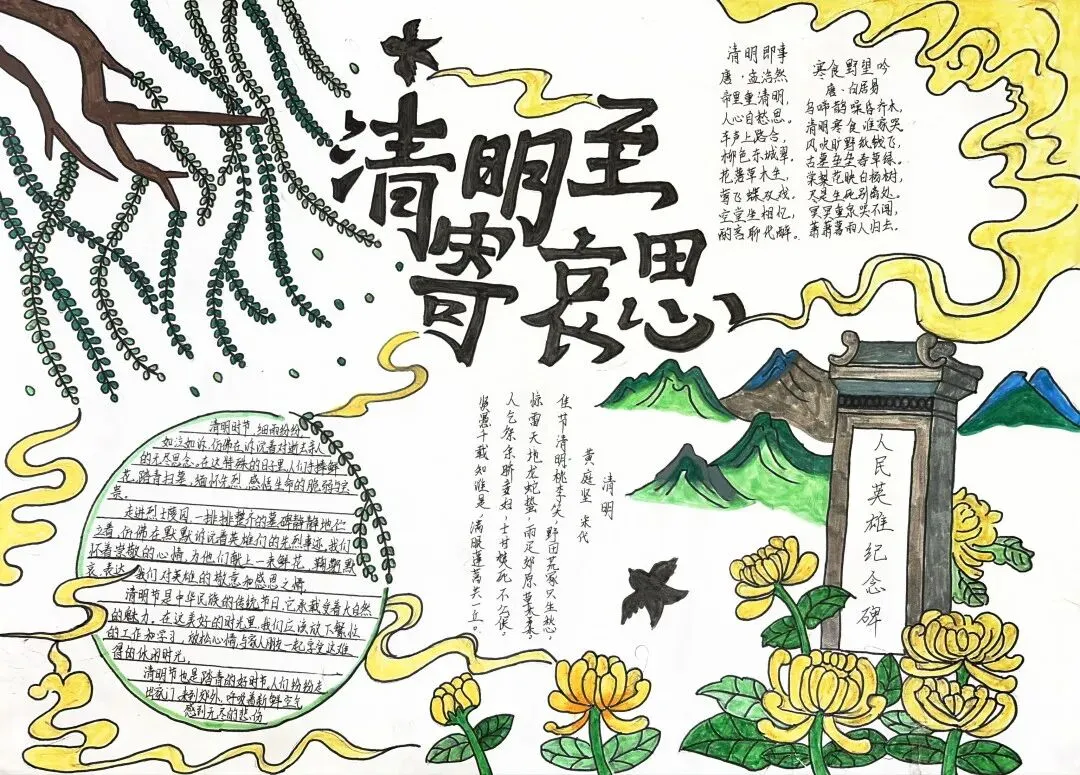 清明至
寄哀思
清明即事
唐·孟浩然
帝里重清明，
人心自愁思。
车声上路合，
柳色东城翠。
花落草木生，
莺飞蝶双戏。
空堂坐相忆，
酌茗聊代醉。
寒食野望吟
唐·白居易
乌啼鹊噪昏乔木，
清明寒食谁家哭
风吹旷野纸钱飞，
古墓垒垒春草绿。
棠梨花映白杨树，
尽是生死别离处。
冥冥重泉哭不闻，
萧萧暮雨人归去。
清明
黄庭坚 宋代
佳节清明桃李笑，野田荒冢只生愁。
惊雷天地龙蛇蛰，雨足郊原草木柔。
人乞祭余骄妾妇，士甘焚死不公侯。
贤愚千载知谁是，满眼蓬蒿共一丘。
清明时节，细雨纷纷，
如泣如诉，仿佛在诉说着对逝去亲人
的无尽思念。在这特殊的日子里，人们手捧鲜
花，踏青扫墓，缅怀先烈，感悟生命的脆弱与宝
贵。
走进烈士陵园，一排排整齐的墓碑静静地伫
立着，仿佛在默默诉说着英雄们的先烈事迹，我们
怀着崇敬的心情，为他们献上一束鲜花，鞠躬默
哀，表达我们对英雄的敬意和感恩之情。
清明节是中华民族的传统节日，它承载着大自然
的魅力，在这美好的时光里，我们应该放下繁忙
的工作和学习，放松心情，与家人朋友一起享受这难
得的休闲时光。
清明节也是踏青的好时节，人们纷纷走
出家门，来到郊外，呼吸着新鲜空气
感到无尽的悲伤
人民英雄纪念碑